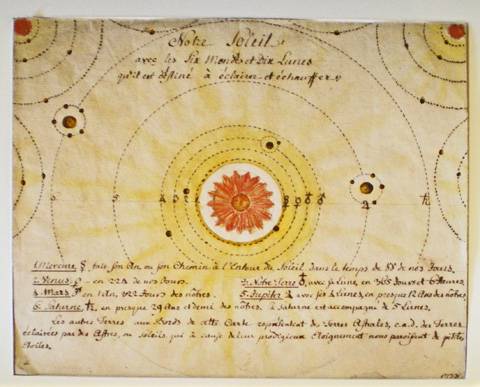 Notre Soleil
avec les Six Mondes et Dix Lunes
qu'il est destiné à éclairer et échauffer
1. Mercure ☿ fait son An ou son Chemin à l'Entour du Soleil dans le temps de 88 de nos Jours.
2. Venus ♀ en 224 de nos Jours. 3. Nôtre Terre ♁, avec sa Lune en 365 Jours et 6 heures
4. Mars ♂ en 1 An, 322 Jours des nôtres. 5. Jupiter ♃ avec ses 4 Lunes, en presque 12 Ans des nôtres.
6. Saturne ♄, en presque 29 Ans et demi des nôtres. à Saturne est accompagné de 5 Lunes.
Les autres Terres aux Bords de cette Carte representent des Terres Astrales, c.a.d. des Terres
éclairées par des Astres, ou Soleils qui à cause de leur prodigieux éloignement nous paroissent de petites
étoiles.